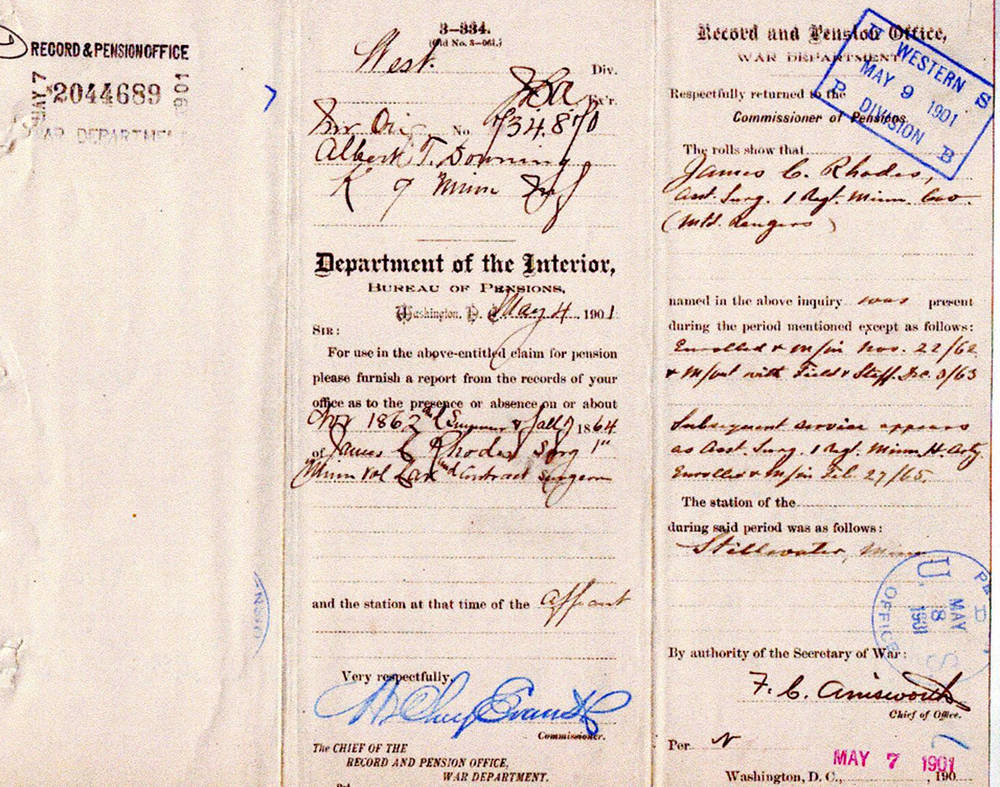 RECORD & PENSION OFFICE
MAY 7 1901
2044689
WAR DEPARTMENT
3-334.
(Old No. 3-061.)
West. Div.
Ex'r.
Inv Orig No. 734.870
Albert T. Downing
K 9 Minn Inf
Department of the Interior,
BUREAU OF PENSIONS,
Washington, D. C. May 4 1901
SIR:
For use in the above-entitled claim for pension
please furnish a report from the records of your
office as to the presence or absence on or about
Nov 1862 and Summer & Fall 1864
of James C Rhodes Surg 1"
Minn Vol Cav and Contract Surgeon
and the station at that time of the affiant
Very respectfully,
H Clay Evans
Commissioner.
The CHIEF OF THE
RECORD AND PENSION OFFICE,
WAR DEPARTMENT.
Record and Pension Office,
WAR DEPARTMENT
U S
WESTERN
MAY 9 1901
DIVISION
P B
Respectfully returned to the
Commissioner of Pensions.
The rolls show that
James C. Rhodes,
Asst. Surg. 1 Regt. Minn. Cav.
(Mtd. Rangers)
named in the above inquiry was present
during the period mentioned except as follows:
Enrolled & M/in Nov. 22/62
& M/out with Field & Staff. Dec. 3/63
Subsequent service appears
as Asst. Surg. 1 Regt. Minn. H. Arty.
Enrolled & M/in Feb. 27/65.
The station of the
during said period was as follows:
Stillwater, Minn
U. S.
MAY 8 1901
OFFICE
By authority of the Secretary of War:
F. C. Ainsworth
Chief of Office.
Per N
MAY 7 1901
Washington, D. C., , 190